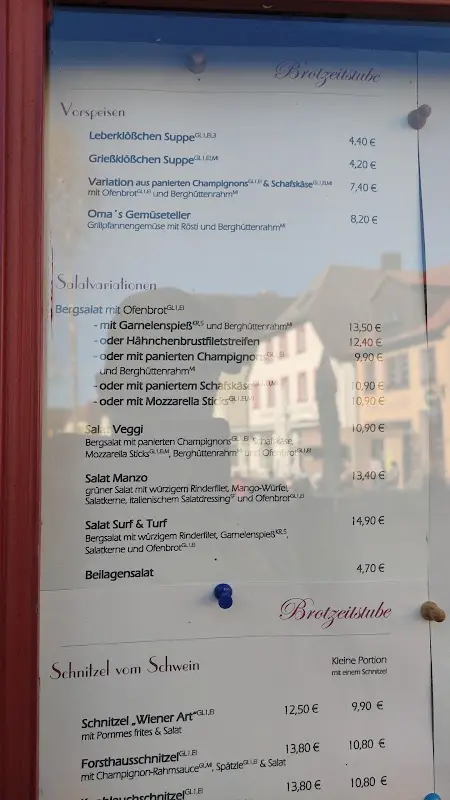 Brotzeitstube
Vorspeisen
Leberklößchen Suppe GL1,EI,3 4,40 €
Grießklößchen Suppe GL1,EI,MI 4,20 €
Variation aus panierten Champignons GL1,EI & Schafskäse GL1,EI,MI 7,40 €
mit Ofenbrot GL1,EI und Berghüttenrahm MI
Oma´s Gemüseteller 8,20 €
Grillpfannengemüse mit Rösti und Berghüttenrahm MI
Salatvariationen
Bergsalat mit Ofenbrot GL1,EI
- mit Garnelenspieß KR,5 und Berghüttenrahm MI 13,50 €
- oder Hähnchenbrustfiletstreifen 12,40 €
- oder mit panierten Champignons GL1,EI 9,90 €
und Berghüttenrahm MI
- oder mit paniertem Schafskäse 10,90 €
- oder mit Mozzarella Sticks GL1,EI,MI 10,90 €
Salat Veggi 10,90 €
Bergsalat mit panierten Champignons GL1,EI, Schafskäse,
Mozzarella Sticks GL1,EI,MI, Berghüttenrahm MI und Ofenbrot GL1,EI
Salat Manzo 13,40 €
grüner Salat mit würzigem Rinderfilet, Mango-Würfel,
Salatkerne, italienischem Salatdressing SF und Ofenbrot GL1,EI
Salat Surf & Turf 14,90 €
Bergsalat mit würzigem Rinderfilet, Garnelenspieß KR,5,
Salatkerne und Ofenbrot GL1,EI
Beilagensalat 4,70 €
Brotzeitstube
Schnitzel vom Schwein Kleine Portion
mit einem Schnitzel
Schnitzel „Wiener Art“ GL1,EI 12,50 € 9,90 €
mit Pommes frites & Salat
Forsthausschnitzel GL1,EI 13,80 € 10,80 €
mit Champignon-Rahmsauce GL,MI, Spätzle GL1,EI & Salat
Knoblauchschnitzel GL1,EI 13,80 € 10,80 €